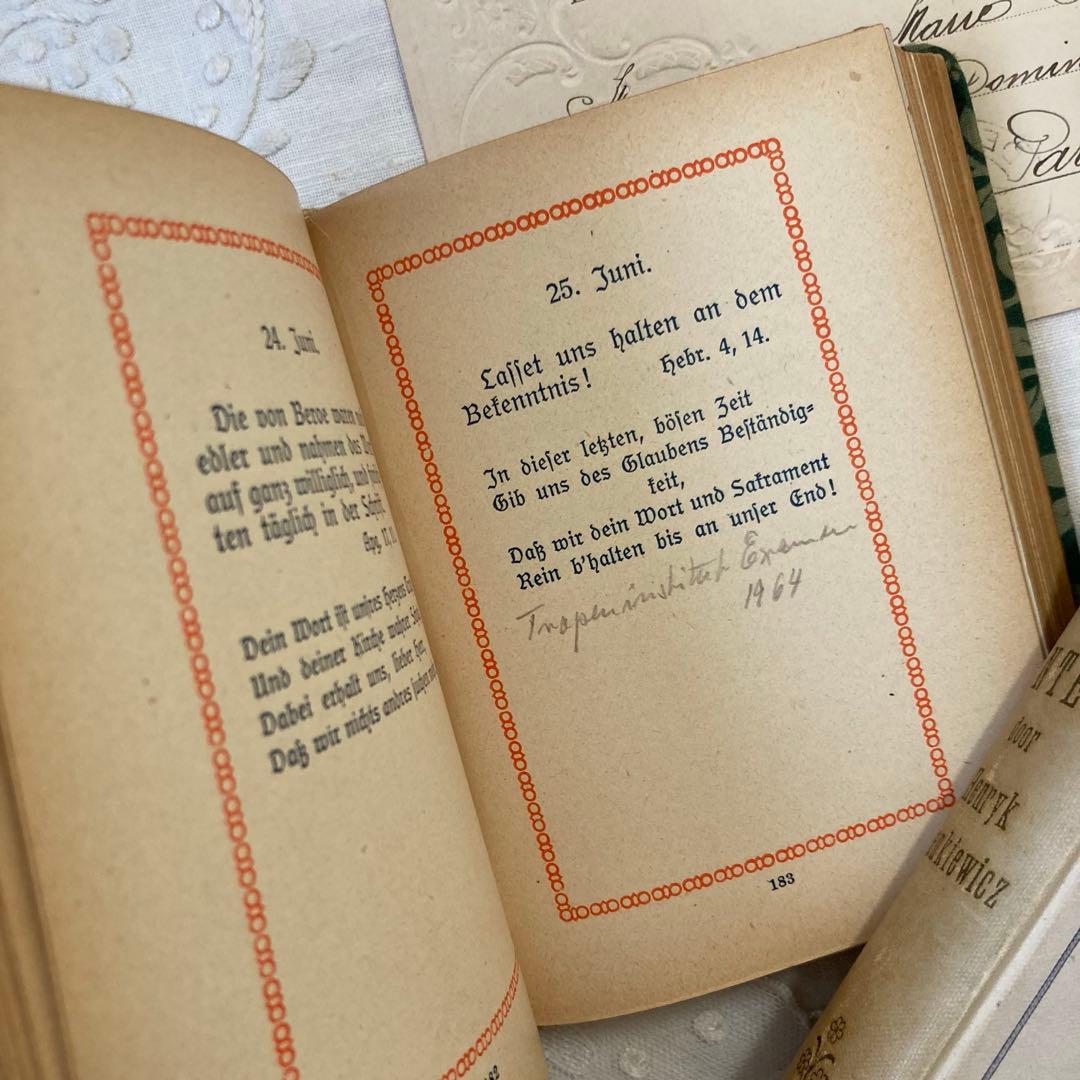 24. Juni.
Die von Beroe waren
edler und nahmen des
auf ganz williglich und
ten täglich in der Schrift
Apg. 17, 11
Dein Wort ist unsres Herzens
Und deiner Kirche wahrer
Dabei erhalt uns, lieber Herr,
Daß wir nichts andres suchen
182
25. Juni.
Lasset uns halten an dem
Bekenntnis! Hebr. 4, 14.
In dieser letzten, bösen Zeit
Gib uns des Glaubens Beständig=
keit,
Daß wir dein Wort und Sakrament
Rein b'halten bis an unser End!
Tropeninstitut Examen
1964
183
Marie
Domin
Par
door
Henryk
nkiewicz